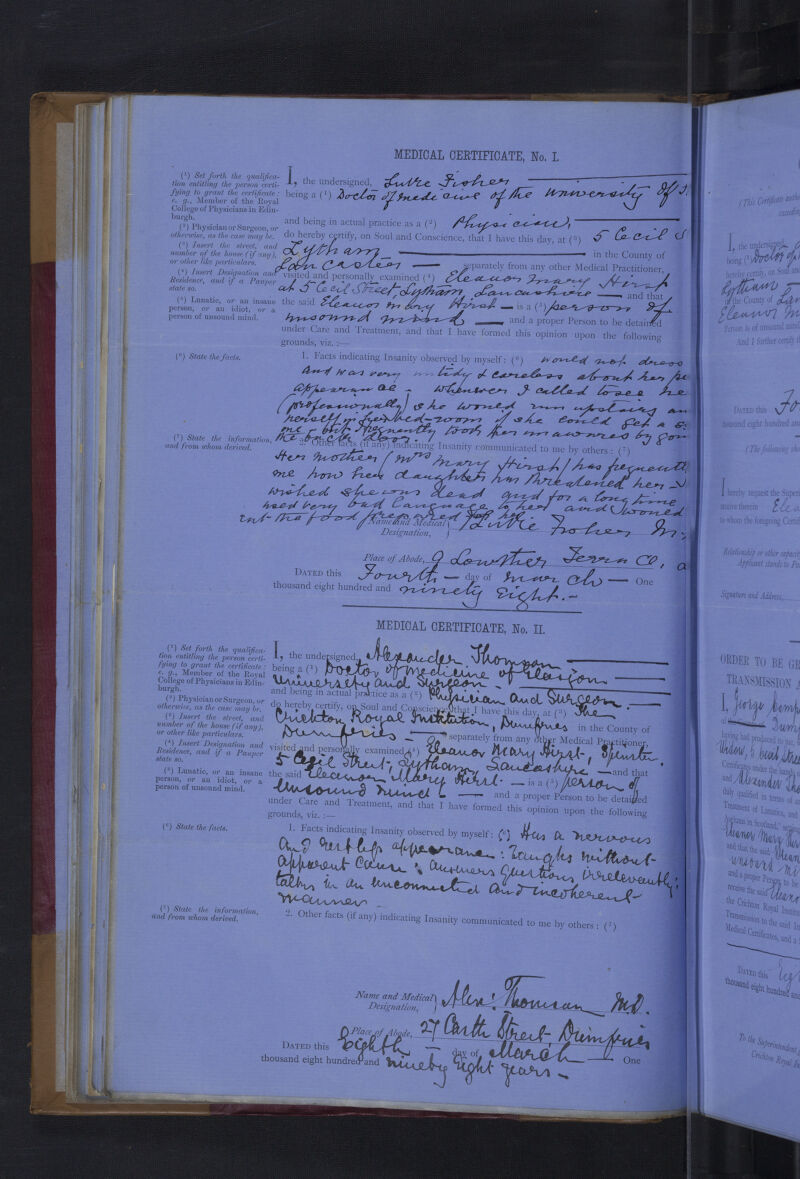 MEDICAL CERTIFICATE, No. I.
(¹) Set forth the qualifica-
tion entitling the person certi-
fying to grant the certificate:
e. g., Member of the Royal
College of Physicians in Edin-
burgh.
(²) Physician or Surgeon, or
otherwise, as the case may be.
(³) Insert the street, and
number of the house (if any),
or other like particulars.
(⁴) Insert Designation and
Residence, and if a Pauper
state so.
(⁵) Lunatic, or an insane
person, or an idiot, or a
person of unsound mind.
I, the undersigned, Luke Fisher
being a (¹) Doctor of medicine of the university of
and being in actual practice as a (²) Physician,
do hereby certify, on Soul and Conscience, that I have this day, at (³) 5 Cecil S
Lytham in the County of
Lancaster separately from any other Medical Practitioner,
visited and personally examined (⁴) Eleanor Mary Hirst
at 5 Cecil Street, Lytham Lancashire and that
the said Eleanor Mary Hirst is a (⁵) person of
unsound mind and a proper Person to be detained
under Care and Treatment, and that I have formed this opinion upon the following
grounds, viz. :—
(⁶) State the facts.
1. Facts indicating Insanity observed by myself: (⁶) would not dress
and was very untidy & careless about her
appearance - whenever I called to see he
(professionally) she would run upstairs an
herself in her bed-room if she could get a
me - but frequently took her unawares by goin
the back door.
(⁷) State the information,
and from whom derived.
2. Other facts (if any) indicating Insanity communicated to me by others: (⁷)
Her mother (Mrs Mary Hirst) has frequentl
me how her daughter has threatened her -
wished she was dead and for a long time
used very bad language to her and would
not the food prepared for her
Name and Medical
Designation, Luke Fisher M.
Place of Abode, 9 Lowther Terrace,
DATED this Fourth day of March One
thousand eight hundred and ninety Eight.-
MEDICAL CERTIFICATE, No. II.
(¹) Set forth the qualifica-
tion entitling the person certi-
fying to grant the certificate:
e. g., Member of the Royal
College of Physicians in Edin-
burgh.
(²) Physician or Surgeon, or
otherwise, as the case may be.
(³) Insert the street, and
number of the house (if any),
or other like particulars.
(⁴) Insert Designation and
Residence, and if a Pauper
state so.
(⁵) Lunatic, or an insane
person, or an idiot, or a
person of unsound mind.
I, the undersigned, Alexander Thomson
being a (¹) Doctor of Medicine of Glasgow
University and Surgeon -
and being in actual practice as a (²) Physician and Surgeon.
do hereby certify, on Soul and Conscience, that I have this day, at (³) The
Crichton Royal Institution, Dumfries in the County of
Dumfries - separately from any other Medical Practitioner,
visited and personally examined (⁴) Eleanor Mary Hirst, Spinster.
5 Cecil Street, Lytham, Lancashire - and that
the said Eleanor Mary Hirst - is a (⁵) person of
Unsound mind - and a proper Person to be detained
under Care and Treatment, and that I have formed this opinion upon the following
grounds, viz. :—
(⁶) State the facts.
1. Facts indicating Insanity observed by myself: (⁶) Has a nervous
and restless appearance: Laughs without
apparent cause: answers questions irrelevantly:
talks in an unconnected and incoherent
manner -
(⁷) State the information,
and from whom derived.
2. Other facts (if any) indicating Insanity communicated to me by others: (⁷)
Name and Medical
Designation, Alexr. Thomson M.D.
Place of Abode, 27 Castle Street Dumfries
DATED this Eighth - day of March One
thousand eight hundred and ninety eight years -
(This Certificate
I, the undersigned
being (¹) Doctor of
hereby certify, on Soul and
Lytham
in the County of Lan
Eleanor M
Person is of unsound mind
And I further certify
DATED this Fo
thousand eight hundred and
(The following
I hereby request the Super
to whom the foregoing Certi
Relationship or other capacity
Applicant stands to Pa
Signature and Address,
ORDER TO BE G
TRANSMISSION
I, George
having had produced to me,
Certificates under the hands
and Alexander Tho
duly qualified in terms of
Treatment of Lunatics, and
Eleanor Mary
and that the said Elean
unsound mi
and a proper Person to be
receive the said Elean
the Crichton Royal Institu
Transmission to the said In
Medical Certificates, and a
DATED this Eig
thousand eight hundred and
To the Superintendent
Crichton Royal In